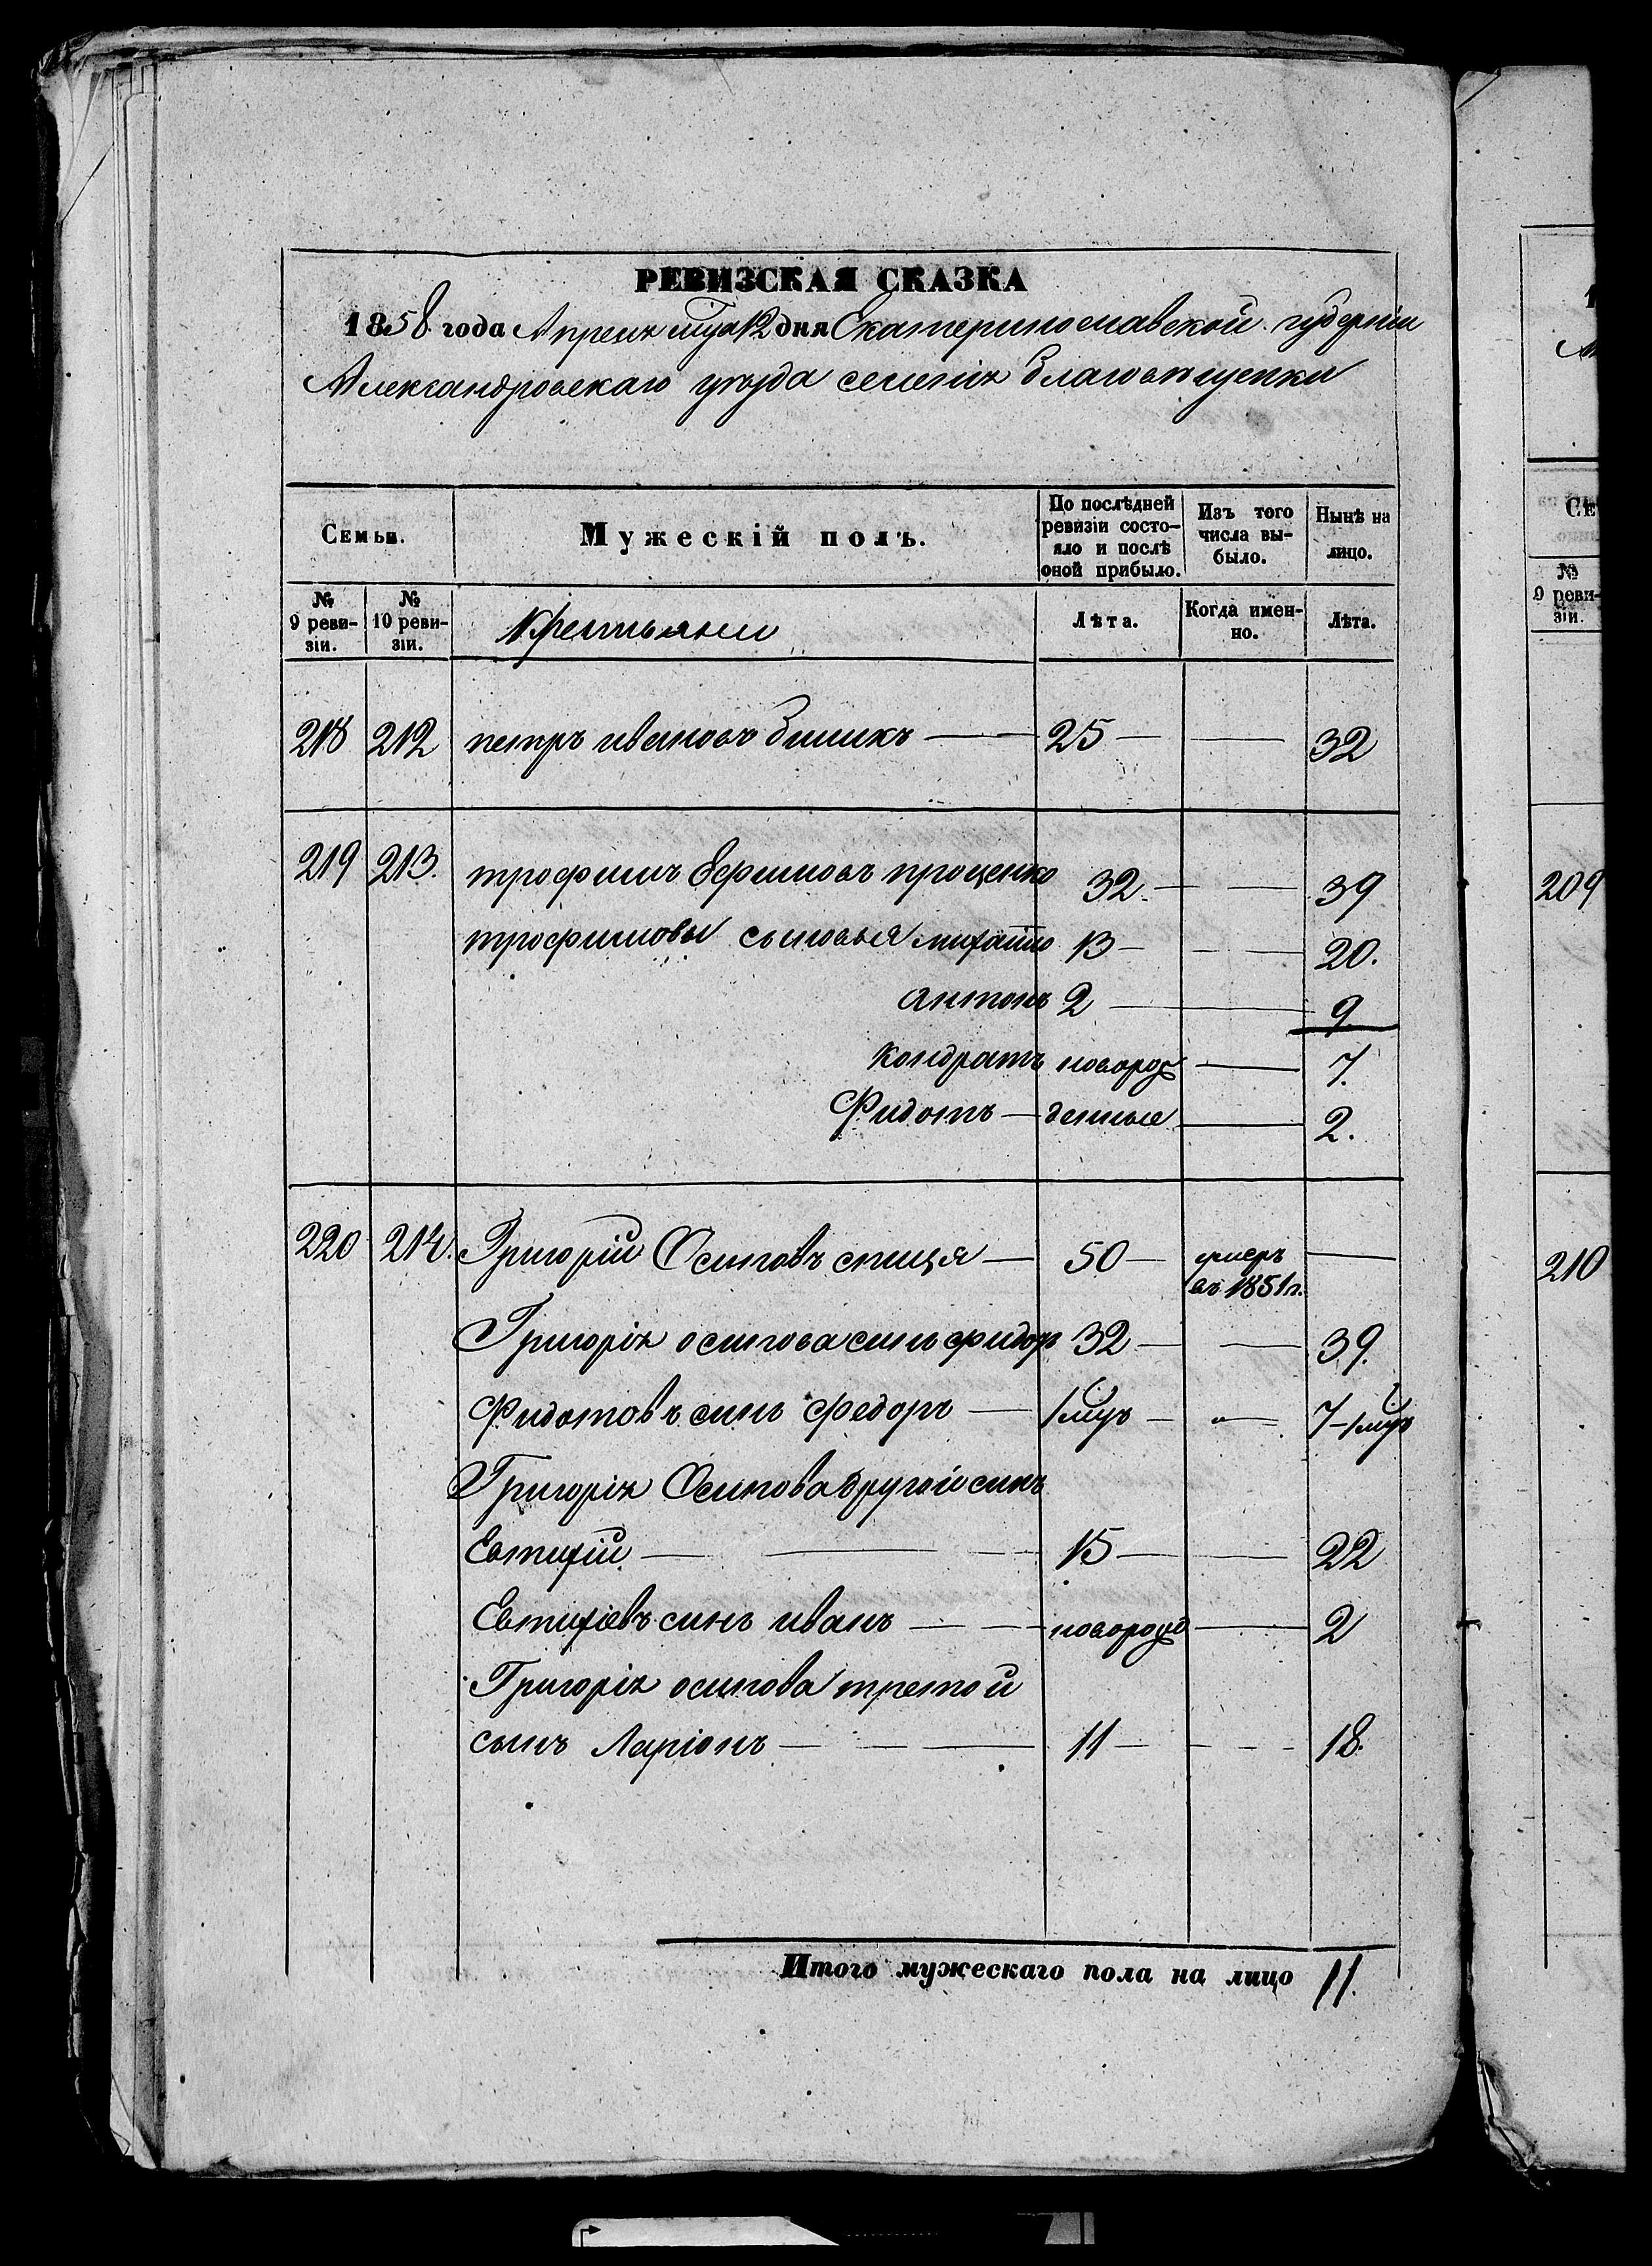 РЕВИЗСКАЯ СКАЗКА
1858 года Апреля мця 12 дня Екатеринославской губерніи
Александровскаго уезда селенія Благовещенки
Семьи.
Мужескій полъ.
По послѣдней ревизіи состо-яло и послѣ оной прибыло.
Изъ того числа вы-было.
Нынѣ на лицо.
№ 9 реви-зіи.
№ 10 реви-зіи.
Крестьяни
Лѣта.
Когда имен-но.
Лѣта.
218 212 петръ ивановъ 25 32
219 213. трофимъ Ефимовъ проценко 32. 39
трофимовы сыновья михайло 13 20.
антонъ 2 9
кондратъ новорож 7.
Фидотъ денные 2.
220 214. Григорій Осиповъ спиця 50 умеръ въ 1851 г.
Григорія осипова синъ фидот 32 39.
Фидотовъ синъ федоръ 1 мцъ 7-1 мцъ
Григорія Осипова другой синъ
Евтихій 15 22
Евтихіевъ синъ иванъ новорожд 2
Григорія осипова третой
сынъ Ларіонъ 11 18.
Итого мужескаго пола на лицо 11.
Се
№ 9 реви-зіи.
209
210